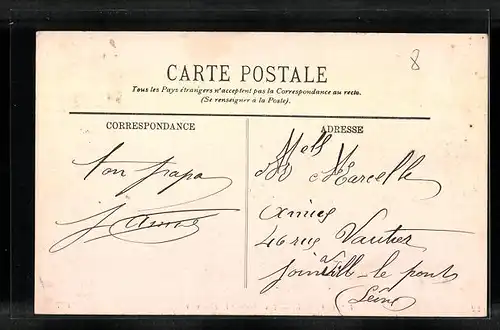 8
CARTE POSTALE
Tous les Pays étrangers n'acceptent pas la Correspondance au recto.
(Se renseigner à la Poste).
CORRESPONDANCE
ton papa
ADRESSE
Melle
Marcelle
46 rue Vautier
Joinville-le pont
(Seine)